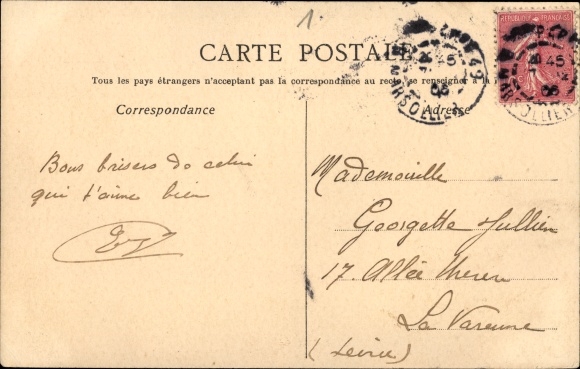 1
CARTE POSTALE
Tous les pays étrangers n'acceptant pas la correspondance au recto, se renseigner à la
Correspondance
Adresse
RÉPUBLIQUE FRANÇAISE
Bons baisers de celui
qui t'aime bien
Mademoiselle
Georgette Jullien
17. Allée
La Varenne
(Seine)